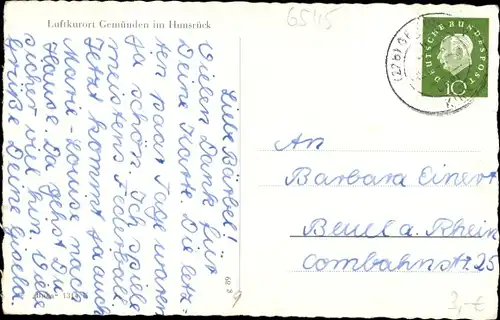 Luftkurort Gemünden im Hunsrück
6545
(22b) GE
DEUTSCHE BUNDESPOST
10
Liebe Bärbel!
Vielen Dank für
Deine Karte. Die letz-
ten paar Tage waren
ja schön. Ich spiele
meistens Federball
Jetzt kommt ja auch
Marie-Louise nach
Hause. Da gehst Du
sicher viel hin. Viele
Grüße Deine Gisela.
An
Barbara Einert
Beuel a. Rhein
Combahnstr. 25
3,- €